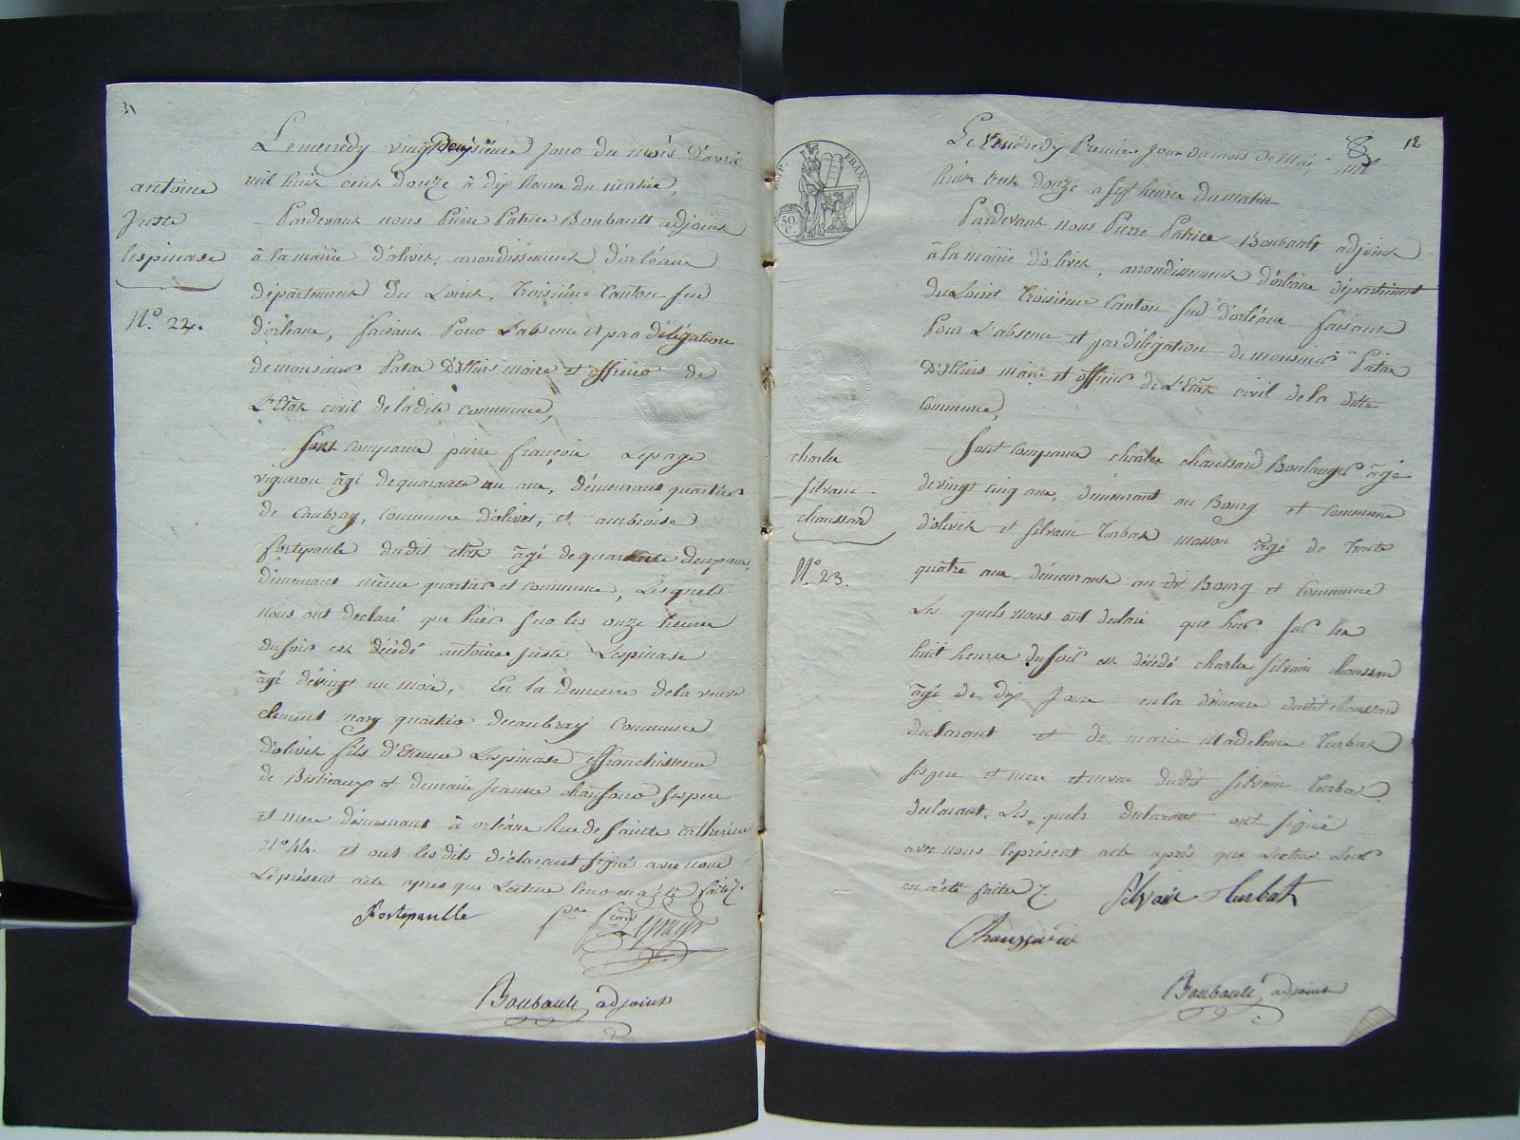 antoine
juste
lespinase
N.o 22.
Le mercredy vingt deuxsieme jour du mois d'avril
mil huit cent douze à dix heure du matin,
Pardevant nous Pierre Patrice Boubault adjoint
à la mairie d'olivet, arrondissement d'orléans
département du Loiret, troisiéme Canton sud
d'orléans, faisant pour l'absence et par délégation
de monsieur Patas D'Illiers maire et officier de
L'Etat civil de la dite commune,
Sont comparu pierre françois Lepage
vigneron âgé de quarante un ans, démeurant quartier
de Caubray, commune d'olivet, et ambroise
fortepaulle dudit état âgé de quarante deux ans,
démeurant même quartier et commune, Lesquels
nous ont declaré que hier sur les onze heure
du soir est décédé antoine juste Lespinase
âgé de vingt un mois, En la demeure de la veuve
clement nary quartier de caubray Commune
d'olivet fils d'Etienne Lespinase
de Bestieaux et de marie Jeanne Chanfour ses pere
et mere démeurant à orléans Rue de Sainte Catherine
N.o 44. et ont les dits déclarant signé avec nous
Le présent acte apres que Lecture leur en a été faite.
Fortepaulle
Lepage
Boubault adjoint
12
Le Vendredy Premier jour du mois de Mai mil
huit cent douze a sept heure du matin
Pardevant nous Pierre Patrice Boubault adjoint
à la mairie d'olivet, arrondissement d'orléans département
du Loiret troisiéme Canton sud d'orléans faisant
Pour L'absence et par délégation de monsieur Patas
D'Illiers maire et officier de L'Etat civil de la ditte
Commune,
TIMP. FRAN.
50 C.
charles
silvain
chaussard
N.o 23.
Sont Comparu charles chaussard Boulanger âgé
de vingt cinq ans, démeurant au Bourg et commune
d'olivet et silvain Turbat masson âgé de trente
quatre ans démeurant au dt Bourg et Commune
Les quels nous ont declaré que hier sur les
huit heures du soir est décédé charles silvain chaussard
âgé de dix jours en la démeure dudit chaussard
declarant et de marie Madeleine Turbat
ses pere et mere et neveu dudit silvain Turbat
declarant. Les quels declarant ont signé
avec nous le présent acte après que Lecture Leur
en a été faite
Silvain Turbat
Chaussard
Boubault adjoint